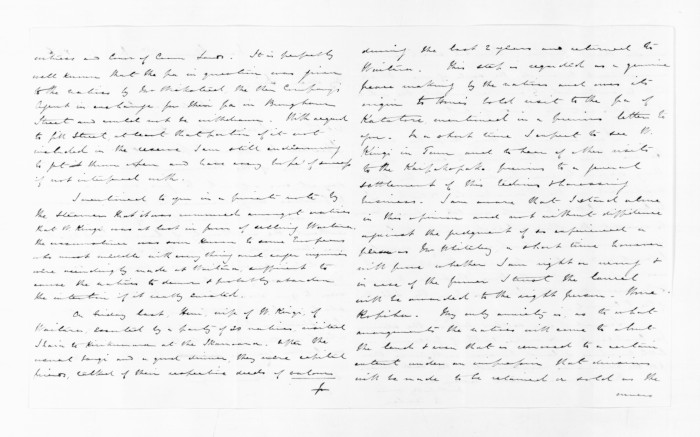 natives and Court of Crown Lands. It is perfectly
well known that the pa in question was given
to the natives by Mr the then Company's
Agent in exchange for their pa on Brougham
Street and could not be withdrawn. With regard
to Gill Street, at least that portion of it not
included in the reserve I am still endeavouring
to get them open and have every hope of success
if not interfered with.
I mentioned to you in a private note by
the steamer that it was rumoured amongst natives
that W Kingi was at last in favor of selling Waitara
the was soon known to some Europeans
who must meddle with everything and eager inquiries
were accordingly made at Waitara, sufficient to
cause the natives to deny & probably abandon
the intention if it really existed.
On Friday last, Heni, wife of W Kingi, of
Waitara, escorted by a party of 20 natives visited
at the . After the
usual tangi and a good dinner, they were capital
friends, talked of their respective deeds of valour
during the last 2 years and returned to
Waitara. This step is regarded as a genuine
peace making by the natives and owes its
origin to bold visit to the pa of
Katatore mentioned in a previous letter to
you. In a short time I expect to see W.
Kingi in Town and to hear of other visits
to the Karaka previous to a general
settlement of this tedious & harassing
business. I am aware that I stand alone
in this opinion and not without diffidence
against the judgment of so experienced a
person as Mr Whiteley a short time however
will prove whether I am right or wrong &
in case of the former I trust the laurel
will be awarded to the right person.
My only anxiety is as to what
arrangements the natives will come to about
the land & even that is removed to a certain
extent under an impression that divisions
will be made to be retained or sold as the
owners